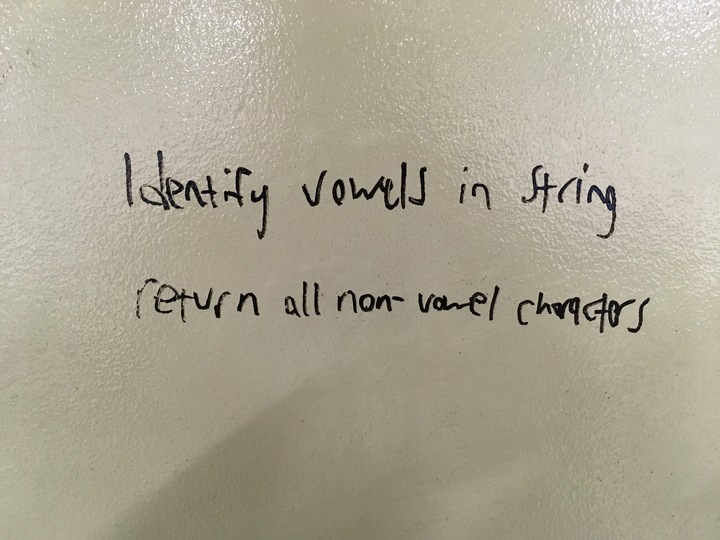 Identify vowels in string
return all non-vowel characters